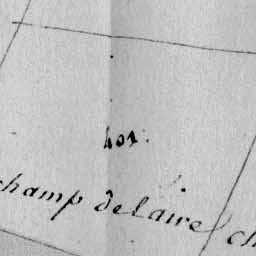 401.
champ de laire ch